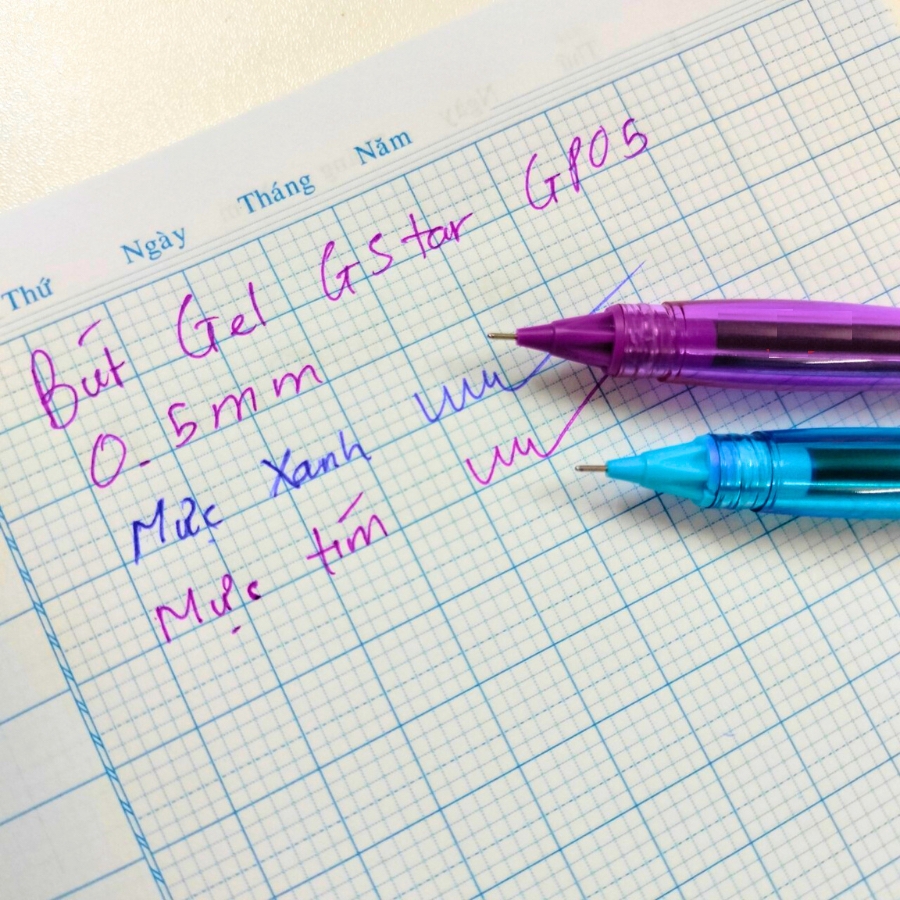 Thứ Ngày Tháng Năm
Bút Gel GStar GP05
0.5mm
Mực Xanh
Mực tím